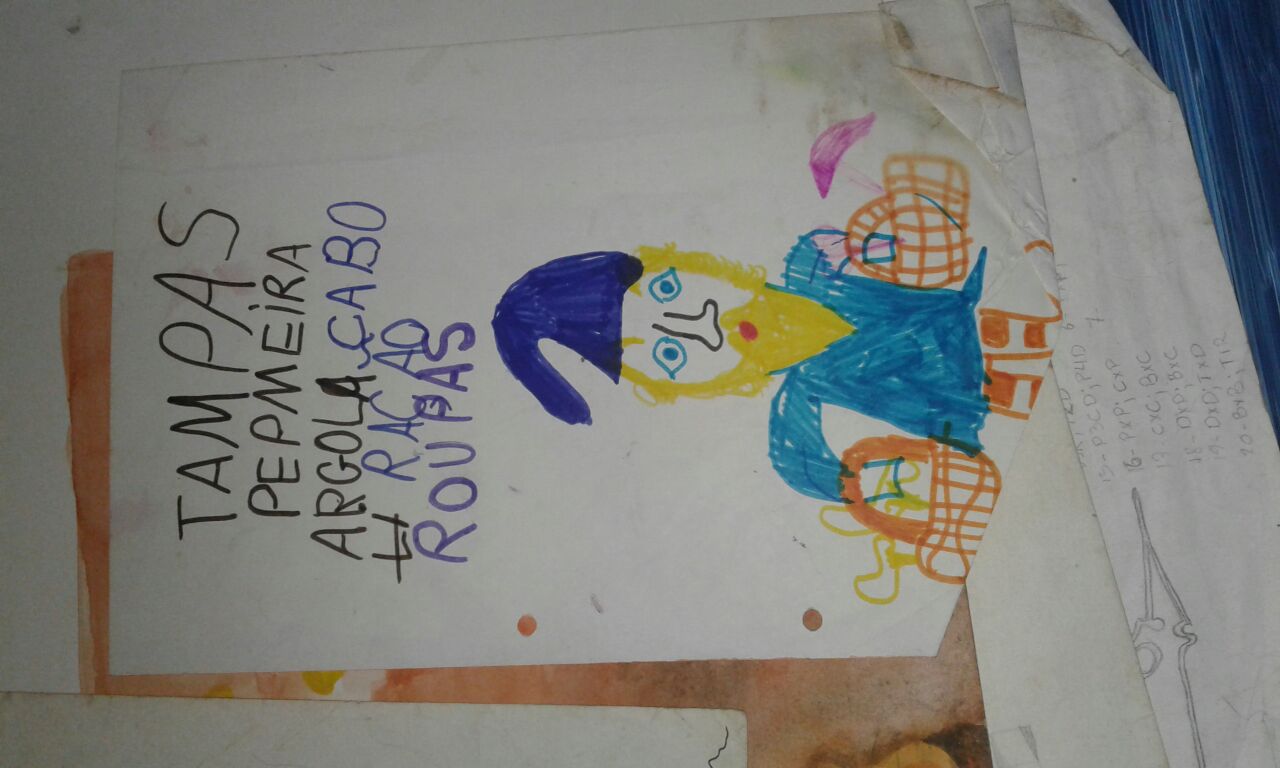 TAMPAS
PEPMEIRA
ARGOLA CABO
RAÇÃO
ROUPAS
15- P3CD; P4D
16- PxP; CxP
17- CxC; BxC
18- DxD; BxC
19- DxD; TxD
20- BxB; T1R
7-